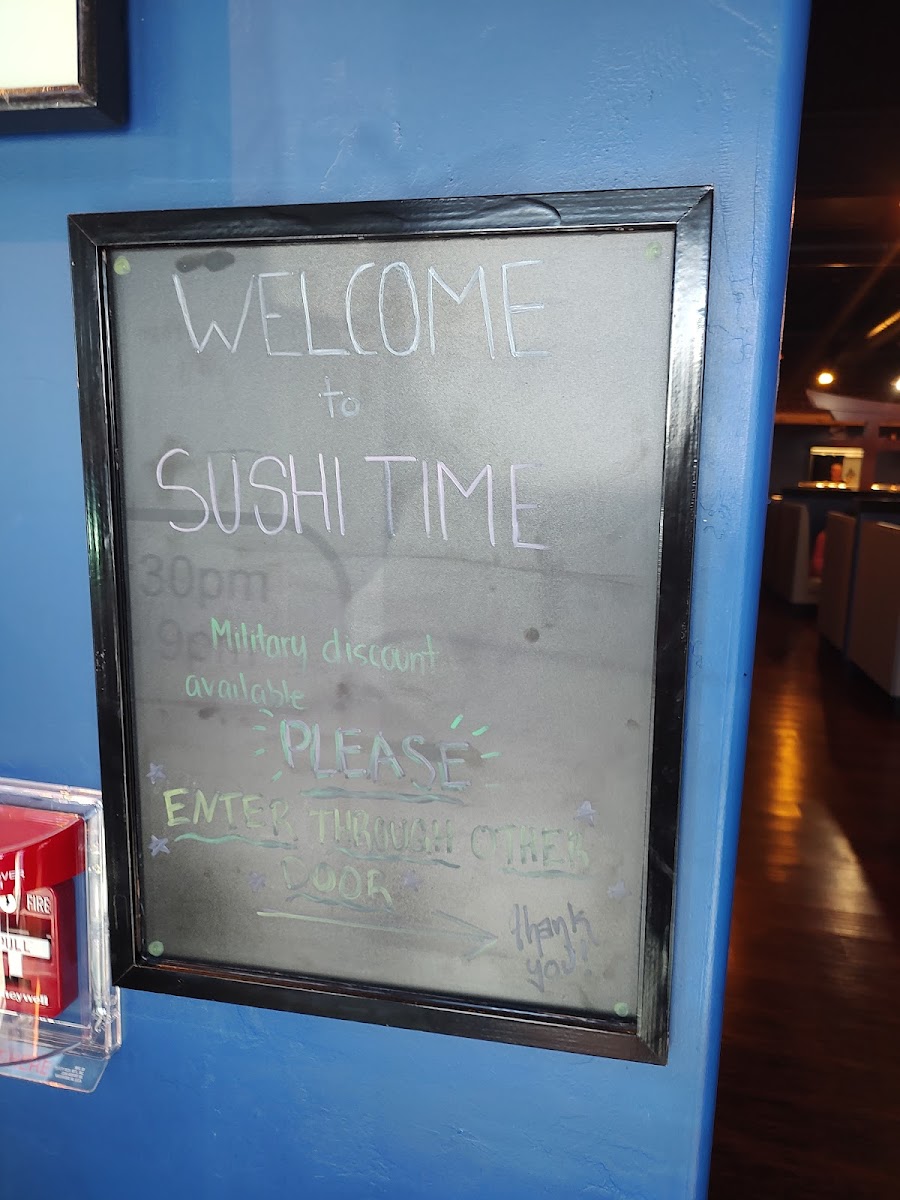 WELCOME
to
SUSHI TIME
30pm
9p
Military discount
available
PLEASE
ENTER THROUGH OTHER
DOOR
thank
you!
FIRE
PULL